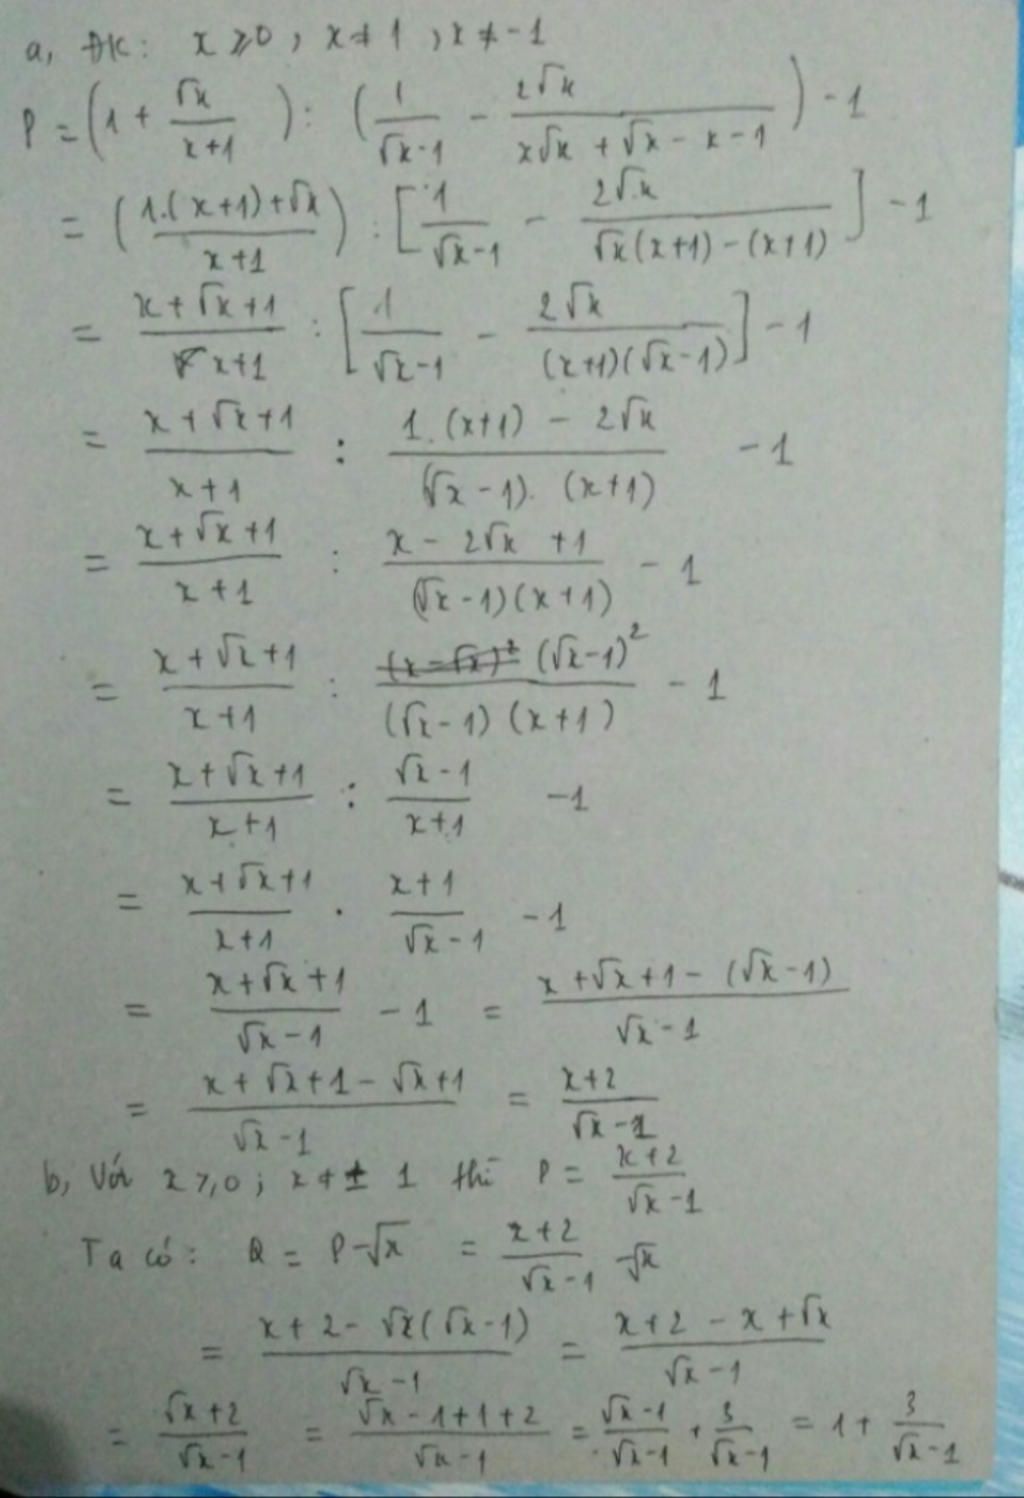 a, ĐK: x ≥ 0, x ≠ 1, x ≠ -1
P = (1 + √x/(x+1)) : (1/(√x-1) - 2√x/(x√x + √x - x - 1)) - 1
= ((1.(x+1)+√x)/(x+1)) : [1/(√x-1) - 2√x/(√x(x+1)-(x+1))] - 1
= (x+√x+1)/(x+1) : [1/(√x-1) - 2√x/((x+1)(√x-1))] - 1
= (x+√x+1)/(x+1) : (1.(x+1) - 2√x)/((√x-1).(x+1)) - 1
= (x+√x+1)/(x+1) : (x - 2√x + 1)/((√x-1)(x+1)) - 1
= (x+√x+1)/(x+1) : (√x-1)²/((√x-1)(x+1)) - 1
= (x+√x+1)/(x+1) : (√x-1)/(x+1) - 1
= (x+√x+1)/(x+1) . (x+1)/(√x-1) - 1
= (x+√x+1)/(√x-1) - 1 = (x+√x+1-(√x-1))/(√x-1)
= (x+√x+1-√x+1)/(√x-1) = (x+2)/(√x-1)
b, Với x ≥ 0; x ≠ ± 1 thì P = (x+2)/(√x-1)
Ta có: Q = P-√x = (x+2)/(√x-1) - √x
= (x+2-√x(√x-1))/(√x-1) = (x+2-x+√x)/(√x-1)
= (√x+2)/(√x-1) = (√x-1+1+2)/(√x-1) = (√x-1)/(√x-1) + 3/(√x-1) = 1 + 3/(√x-1)